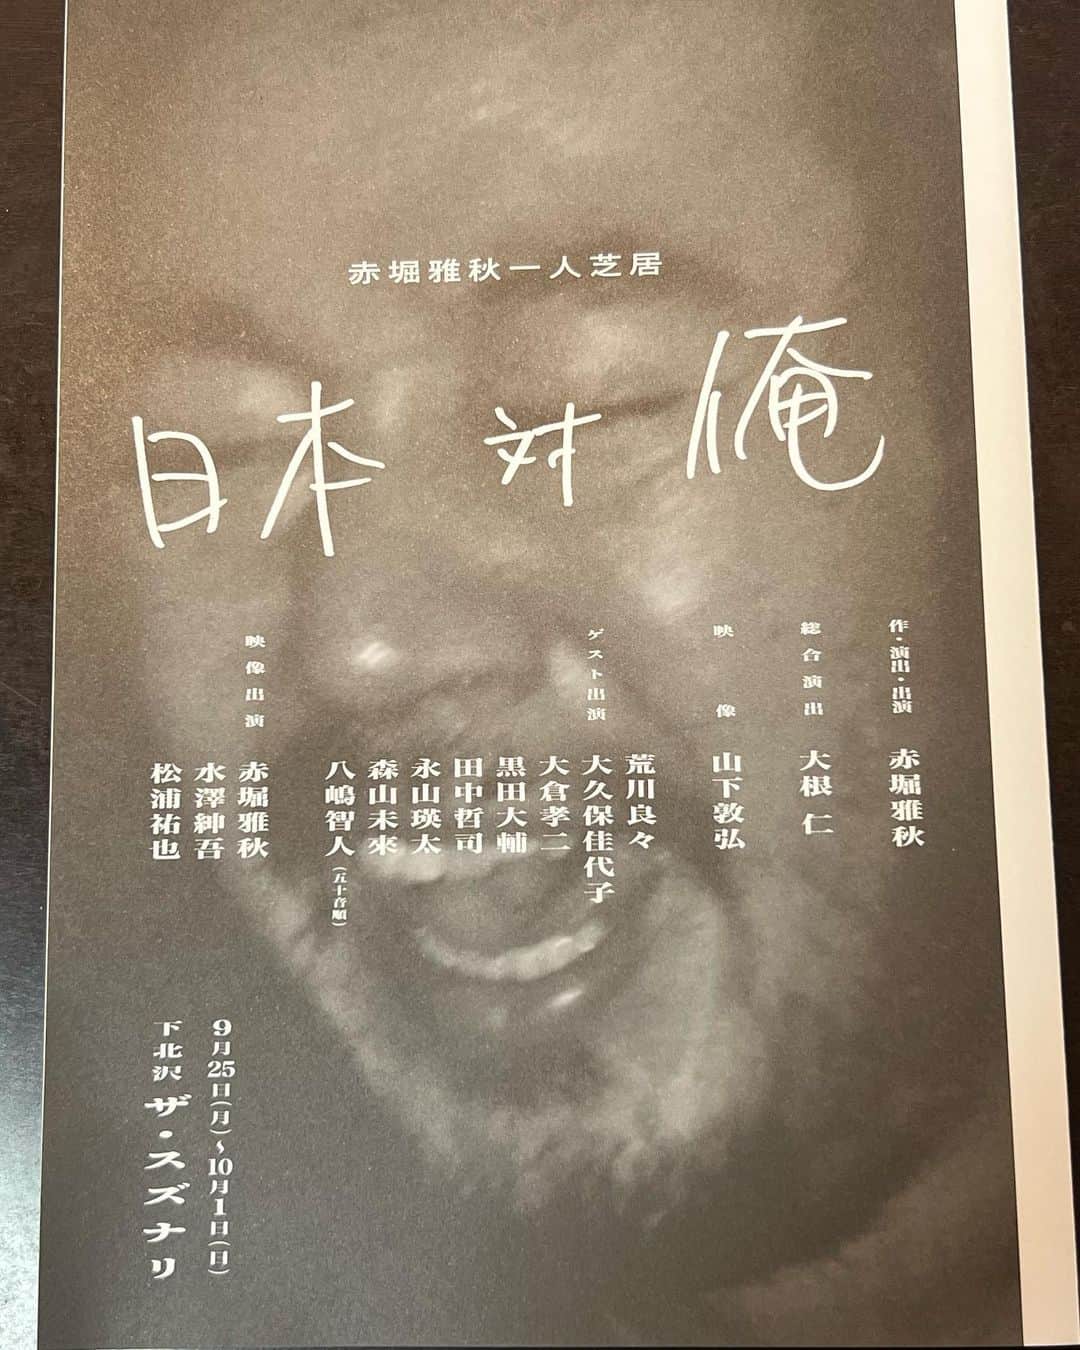 赤堀雅秋一人芝居
日本対俺
作・演出・出演 赤堀雅秋
総合演出 大根 仁
映像 山下敦弘
ゲスト出演 荒川良々
大久保佳代子
大倉孝二
黒田大輔
田中哲司
永山瑛太
森山未來
八嶋智人(五十音順)
映像出演 赤堀雅秋
水澤紳吾
松浦祐也
9月25日(月)〜10月1日(日)
下北沢 ザ・スズナリ